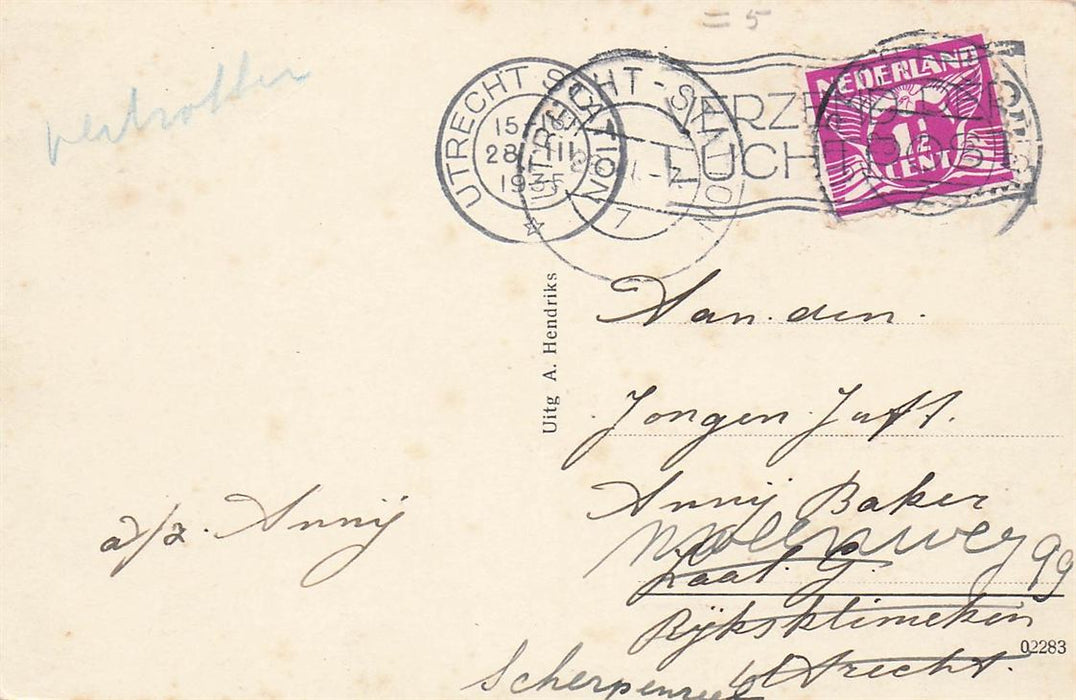 = 5
vertrokken
UTRECHT-STATION
15
28 III
1935
UTRECHT-STATION
7
VERZEND PER
LUCHTPOST
NEDERLAND
1½
CENT
Uitg A. Hendriks
Aan den.
Jongen Juff.
Annij Baker
Molenweg 99
Zaal G.
Rijksklinieken
Utrecht.
Scherpenzeel
a/z. Annij
02283